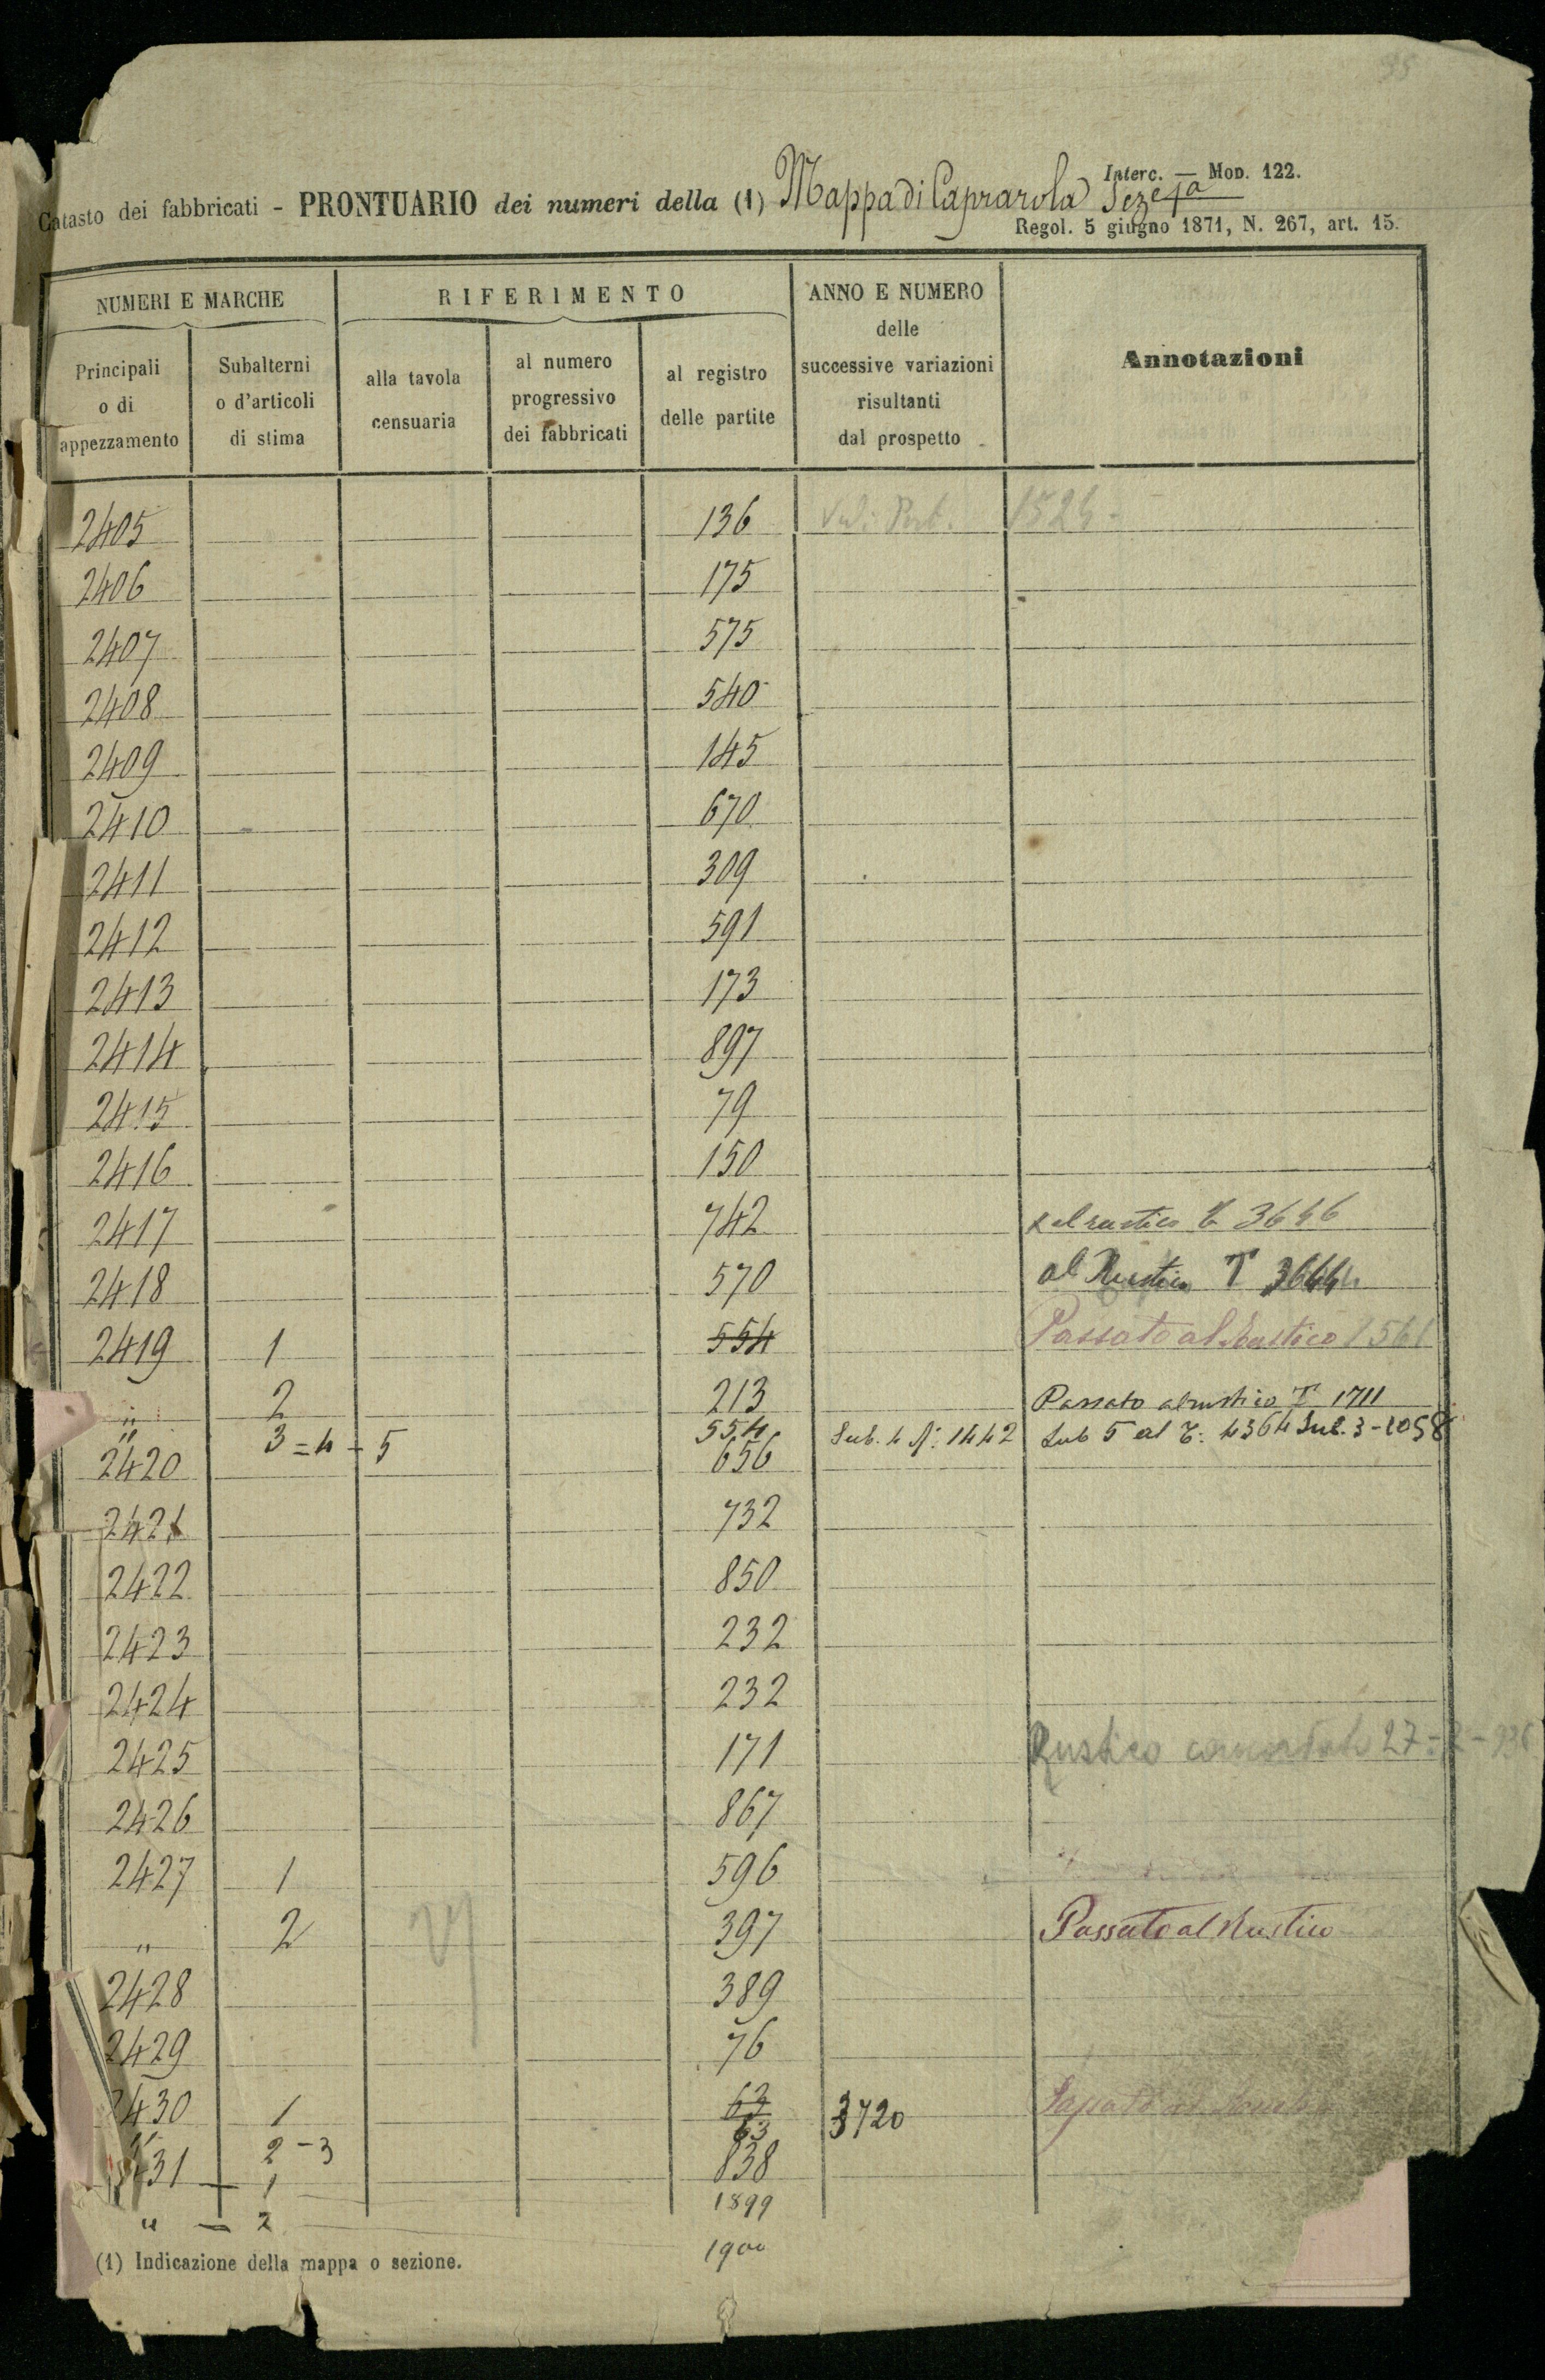 95
Interc. — Mod. 122.
Catasto dei fabbricati - PRONTUARIO dei numeri della (1) Mappa di Caprarola Sez.e 1a
Regol. 5 giugno 1871, N. 267, art. 15.
NUMERI E MARCHE RIFERIMENTO ANNO E NUMERO delle successive variazioni risultanti dal prospetto Annotazioni
Principali o di appezzamento Subalterni o d'articoli di stima alla tavola censuaria al numero progressivo dei fabbricati al registro delle partite
2405 136 Vedi Part. 1524 -
2406 175
2407 575
2408 540
2409 145
2410 670
2411 309
2412 591
2413 173
2414 897
2415 79
2416 150
2417 742 al rustico 3646
2418 570 al Rustico T 3644
2419 1 554 Passato al Rustico 1561
" 2 213 Passato al rustico T 1711
" 3 = 4 - 5 554 Sub. 4 N. 1442 Sub 5 al T. 4364 Sub. 3 - 1058
2420 656
2421 732
2422 850
2423 232
2424 232
2425 171 Rustico 27-2-936
2426 867
2427 1 596
" 2 397 Passato al Rustico
2428 389
2429 76
2430 1 63 3720
" 2 - 3 63
2431 — 1 838
1899
" — 2
1900
(1) Indicazione della mappa o sezione.